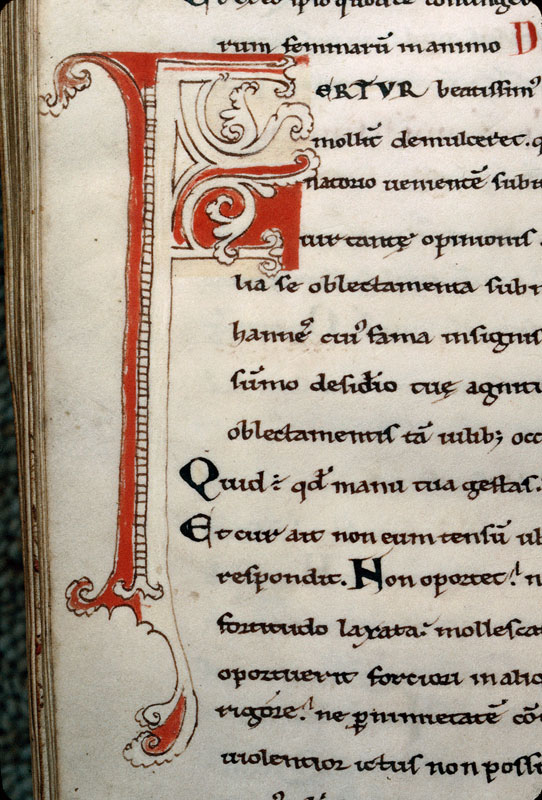 rum feminarū in animo D
FERTVR beatissimꝰ
mollit̄ demulceret. q
natorio uementē subit
cur tantę opinionis
lia se oblectamenta subm
hannēs cuiꝰ fama insignis
sūmo desid̄io tuę agniti
oblectamentis tā uilibꝫ occ
Quid ē qđ manu tua gestas.
Et cur ait non eum tensū ub
respondit. Non oportet. n
fortitudo laxata mollesca
oportuerit fortiori in alic
rigore. ne ꝑ inmietatē cō
uiolentior ictus non possi